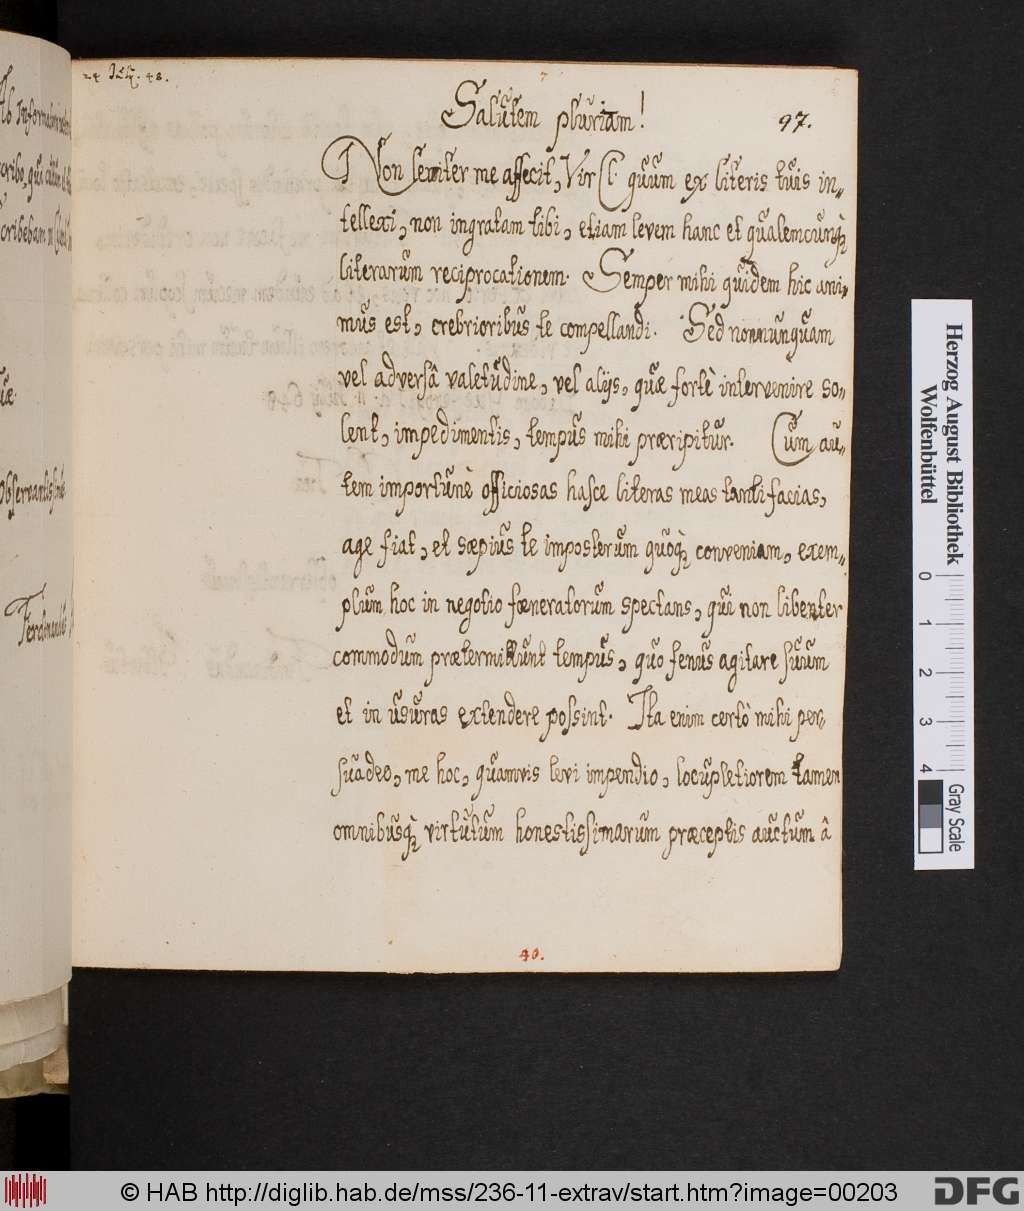 24 Julij. 48.
Salutem pluriam!
97.
Non leniter me affecit, Vir Cl. quum ex literis tuis in-
tellexi, non ingratam tibi, etiam levem hanc et qualemcunq;
literarum reciprocationem. Semper mihi quidem hic ani-
mus est, crebrioribus te compellandi. Sed nonnunquam
vel adversâ valetudine, vel aliis, quæ fortè intervenire so-
lent, impedimentis, tempus mihi præripitur. Cum au-
tem importunè officiosas hasce literas meas tanti facias,
age fiat, et sæpius te imposterum quoq; conveniam, exem-
plum hoc in negotio fœneratorum spectans, qui non libenter
commodum prætermittunt tempus, quo fenus agitare suum
et in usuras extendere possint. Ita enim certò mihi per-
suadeo, me hoc, quamvis levi impendio, locupletiorem tamen
omnibusq; virtutum honestissimarum præceptis auctum â
40.
Ferdinandus
Herzog August Bibliothek
Wolfenbüttel
0 1 2 3 4
Gray Scale
© HAB http://diglib.hab.de/mss/236-11-extrav/start.htm?image=00203
DFG